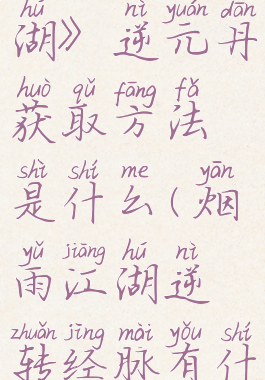 hú nì yuán dān
湖》 逆元丹
huò qǔ fāng fǎ
获取方法
shì shí me yān
是什么(烟
yǔ jiāng hú nì
雨江湖逆
zhuǎn jīng mài yǒu shí
转经脉有什